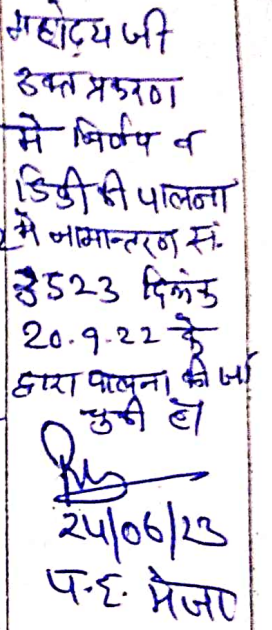 महोदय जी
उक्त प्रकरण
में निर्णय व
डिक्री की पालना
में नामान्तरण सं.
3523 दिनांक
20.9.22 के
द्वारा पालना की जा
चुकी है।
24/06/23
प.ह. मेजा